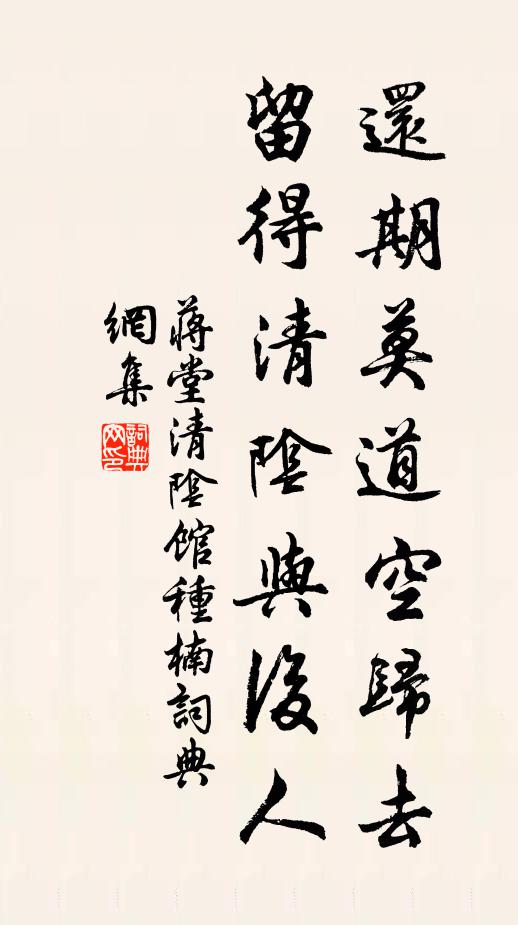 還期莫道空歸去
留得清陰與後人
蔣堂清陰館種楠詞典
網集
詞典